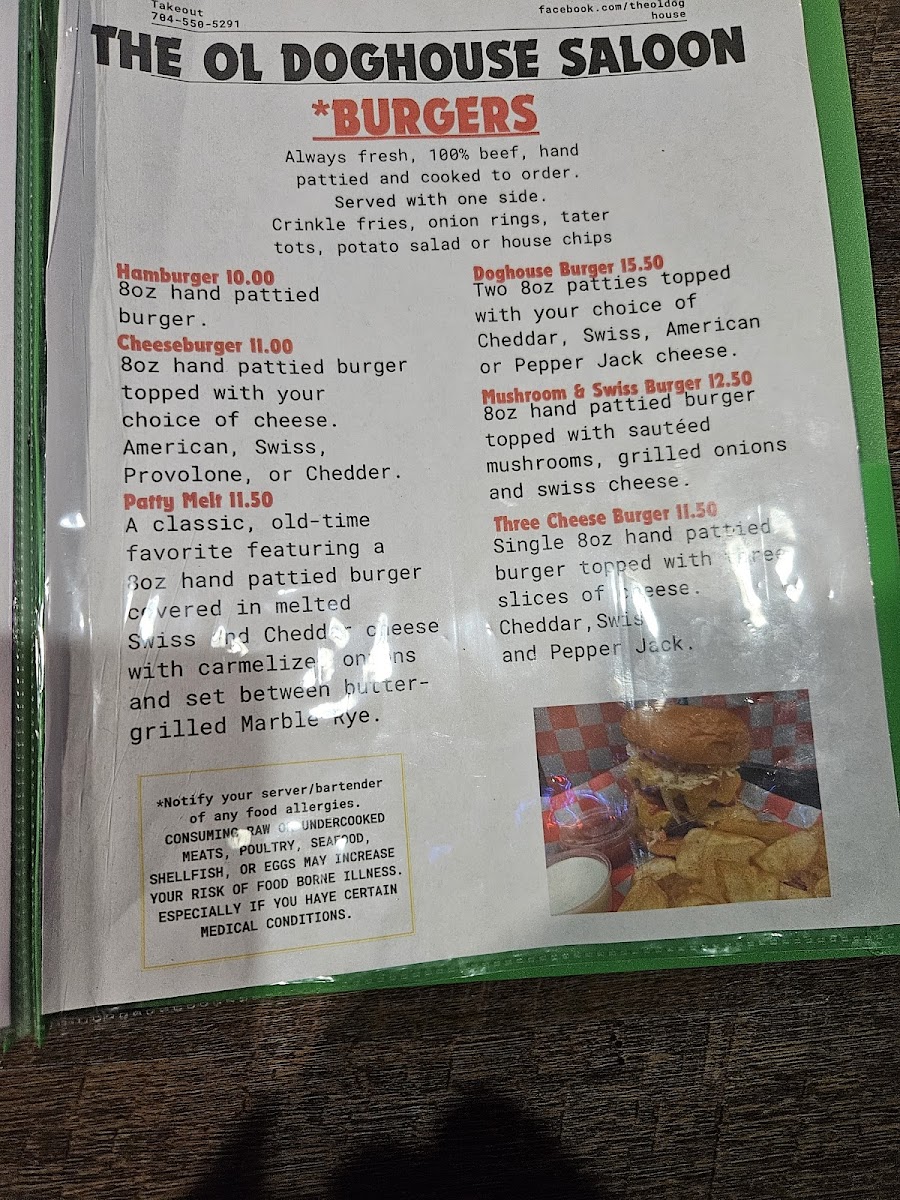 Takeout
704-550-5291
facebook.com/theoldog
house
THE OL DOGHOUSE SALOON
*BURGERS
Always fresh, 100% beef, hand
pattied and cooked to order.
Served with one side.
Crinkle fries, onion rings, tater
tots, potato salad or house chips
Hamburger 10.00
8oz hand pattied
burger.
Cheeseburger 11.00
8oz hand pattied burger
topped with your
choice of cheese.
American, Swiss,
Provolone, or Chedder.
Patty Melt 11.50
A classic, old-time
favorite featuring a
8oz hand pattied burger
covered in melted
Swiss and Cheddar cheese
with carmelized onions
and set between butter-
grilled Marble Rye.
Doghouse Burger 15.50
Two 8oz patties topped
with your choice of
Cheddar, Swiss, American
or Pepper Jack cheese.
Mushroom & Swiss Burger 12.50
8oz hand pattied burger
topped with sautéed
mushrooms, grilled onions
and swiss cheese.
Three Cheese Burger 11.50
Single 8oz hand pattied
burger topped with three
slices of cheese.
Cheddar, Swiss
and Pepper Jack.
*Notify your server/bartender
of any food allergies.
CONSUMING RAW OR UNDERCOOKED
MEATS, POULTRY, SEAFOOD,
SHELLFISH, OR EGGS MAY INCREASE
YOUR RISK OF FOOD BORNE ILLNESS.
ESPECIALLY IF YOU HAYE CERTAIN
MEDICAL CONDITIONS.